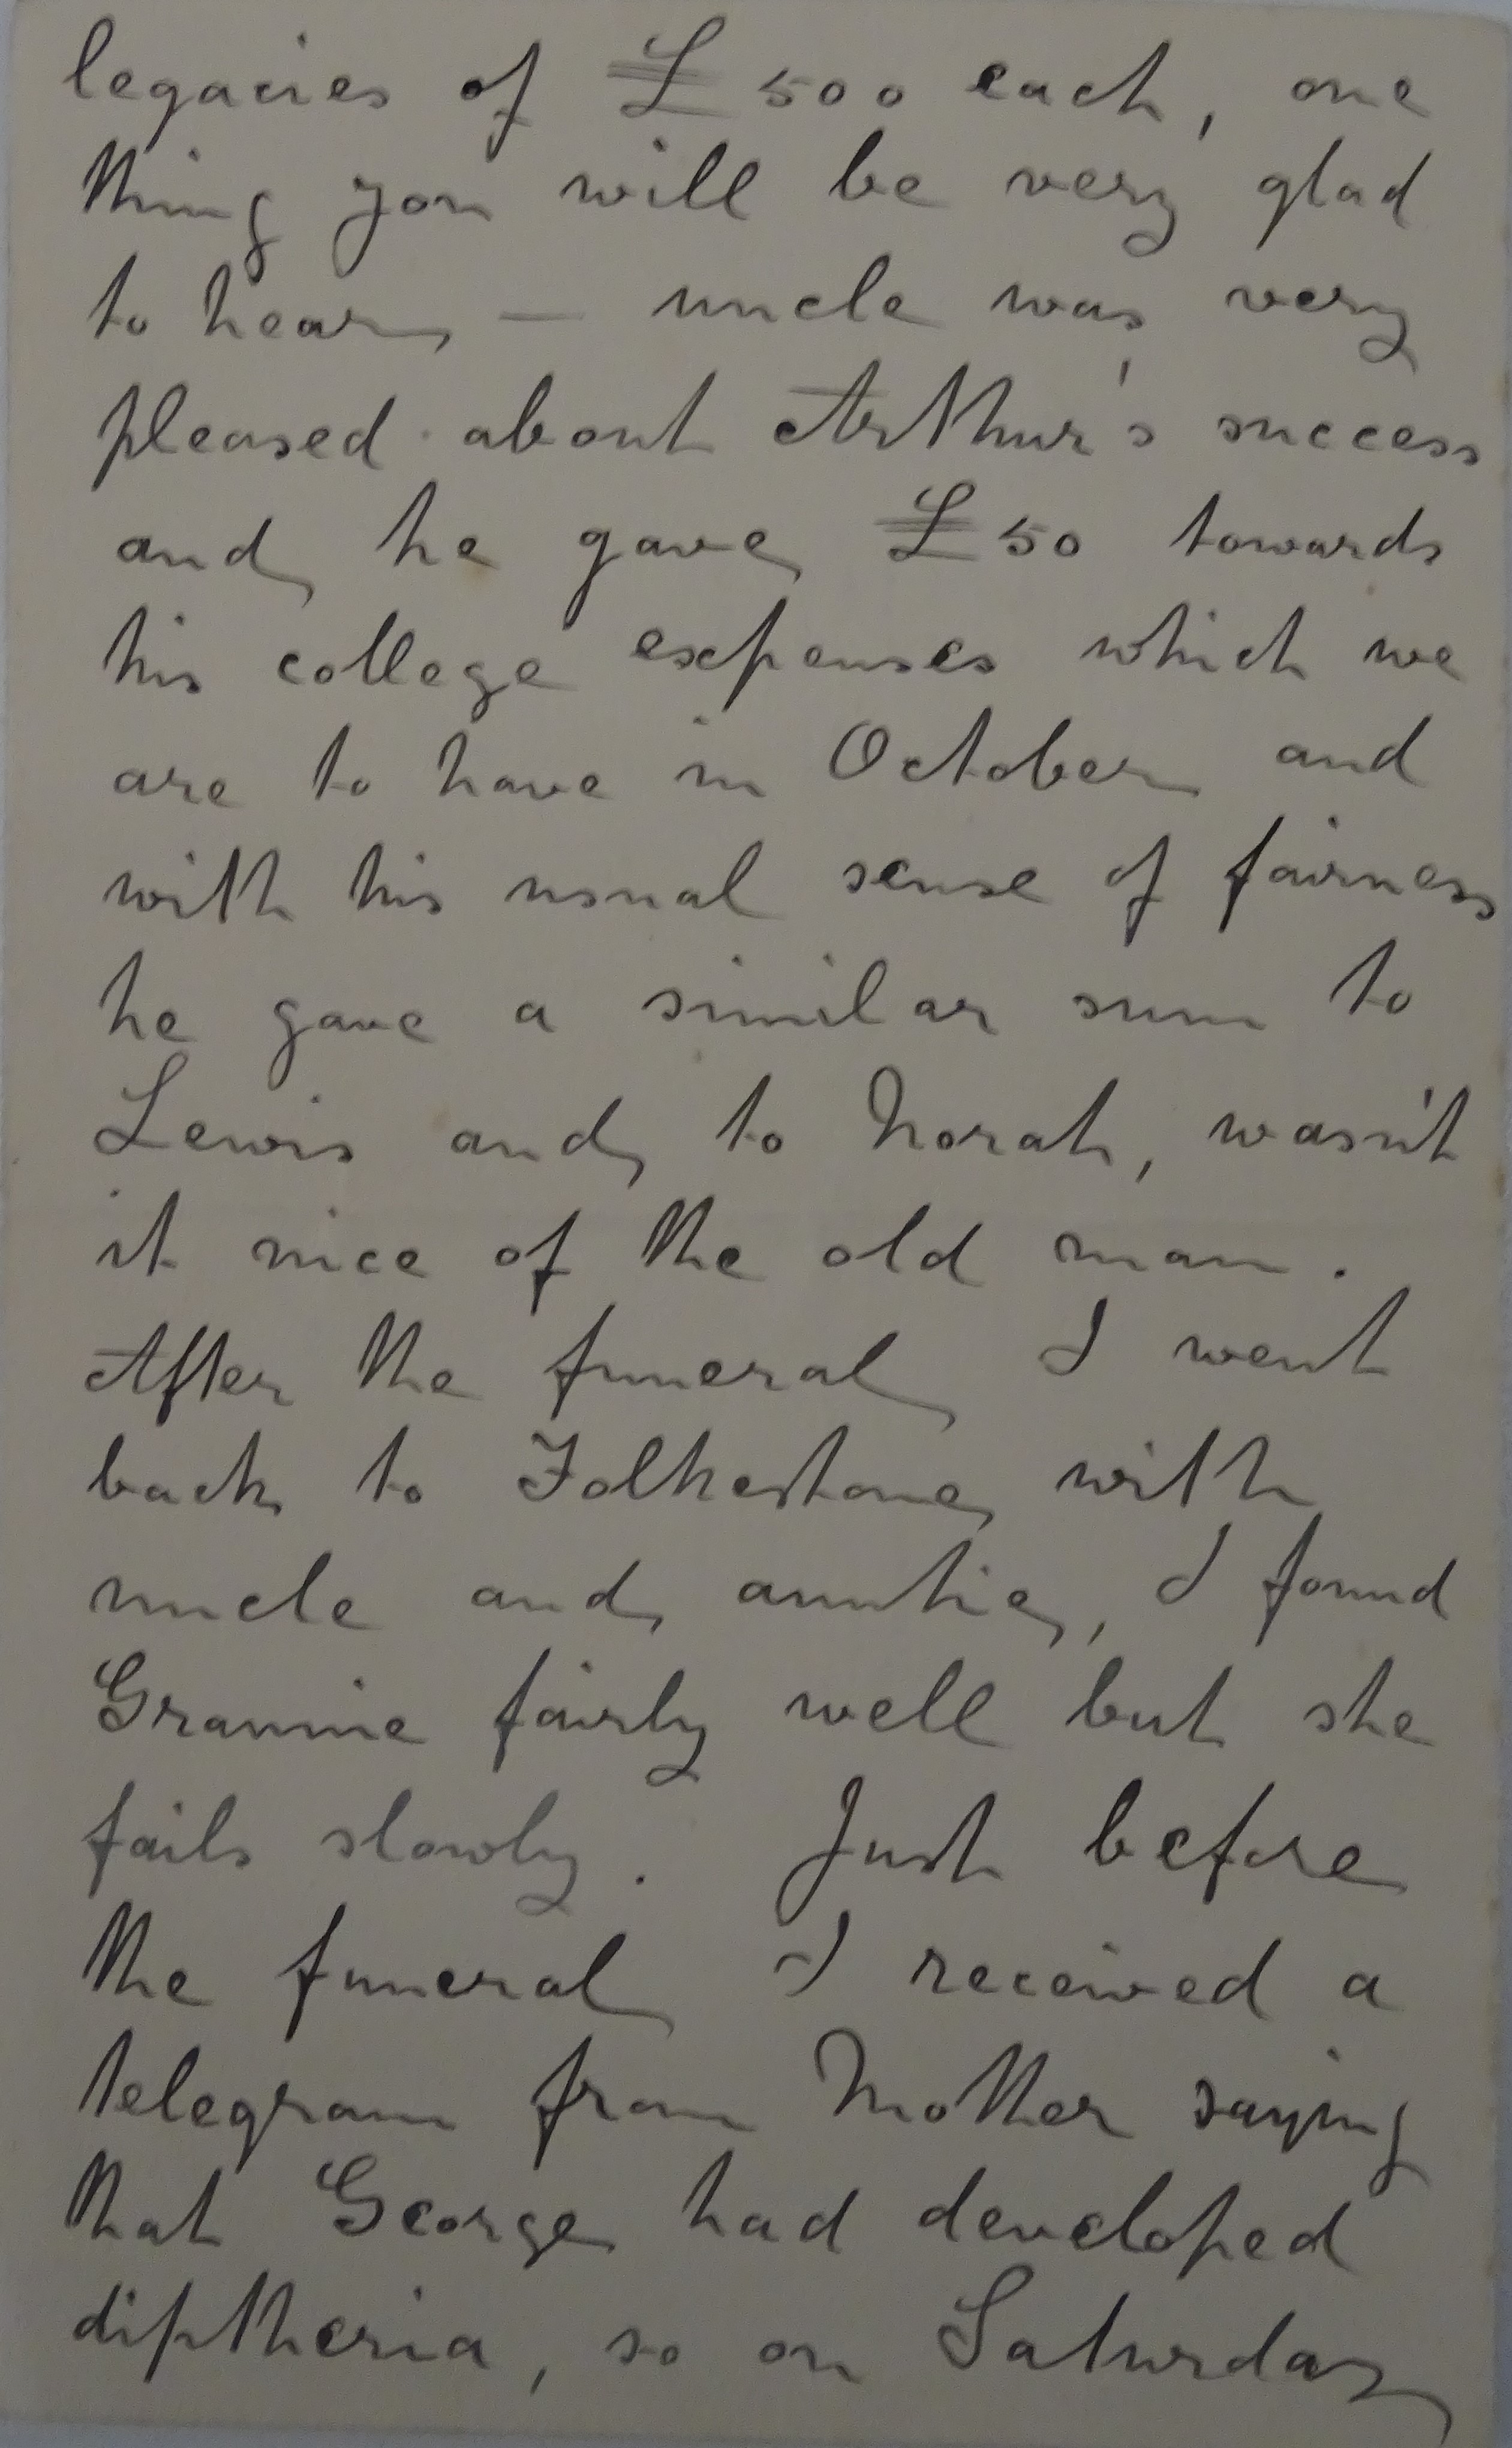 legacies of £500 each, one
thing you will be very glad
to hear — uncle was very
pleased about Arthur's success
and he gave £50 towards
his college expenses which we
are to have in October and
with his usual sense of fairness
he gave a similar sum to
Lewis and to Norah, wasn't
it nice of the old man.
After the funeral I went
back to Folkestone with
uncle and auntie, I found
Grannie fairly well but she
fails slowly. Just before
the funeral I received a
telegram from Mother saying
that George had developed
diptheria, so on Saturday